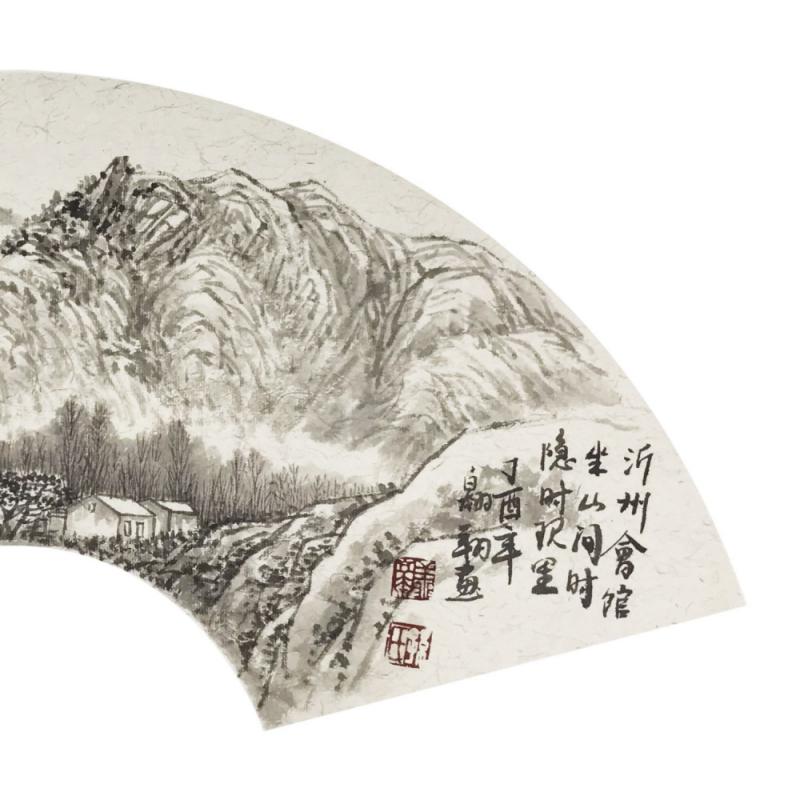 沂州會館
坐山间时
隐时现里
丁酉年
翱翔画